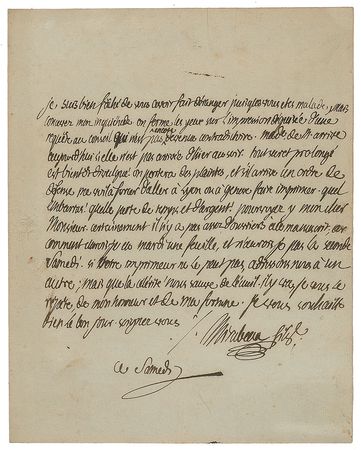 je suis bien fâché de vous avoir fait déranger puisque vous êtes malade, mais
concevez mon inquiétude on ferme les yeux sur l'impression d'une
requête au conseil qui n'est pas encore devenue contradictoire. made de St arrive
aujourd'hui si elle n'est pas arrivée d'hier au soir. tout secret prolongé
est bientôt divulgué on portera des plaintes, et s'il arrive un ordre de
défense me voilà forcé d'aller à Lyon ou à genève faire imprimer. quel
embarras! quelle perte de temps et d'argent! pourvoyez y mon cher
Monsieur. certainement il n'y a pas assez d'ouvriers à le manuscrit, car
comment aurois-je eu mardi une feuille, et n'aurois je pas la seconde
Samedi. si votre imprimeur ne le peut pas adressons nous à un
autre; mais que la célérité nous sauve de l'écueil. il y va je vous le
répète de mon honneur et de ma fortune. je vous souhaite
bien le bon jour. soignez vous
Mirabeau fils.
ce Samedi